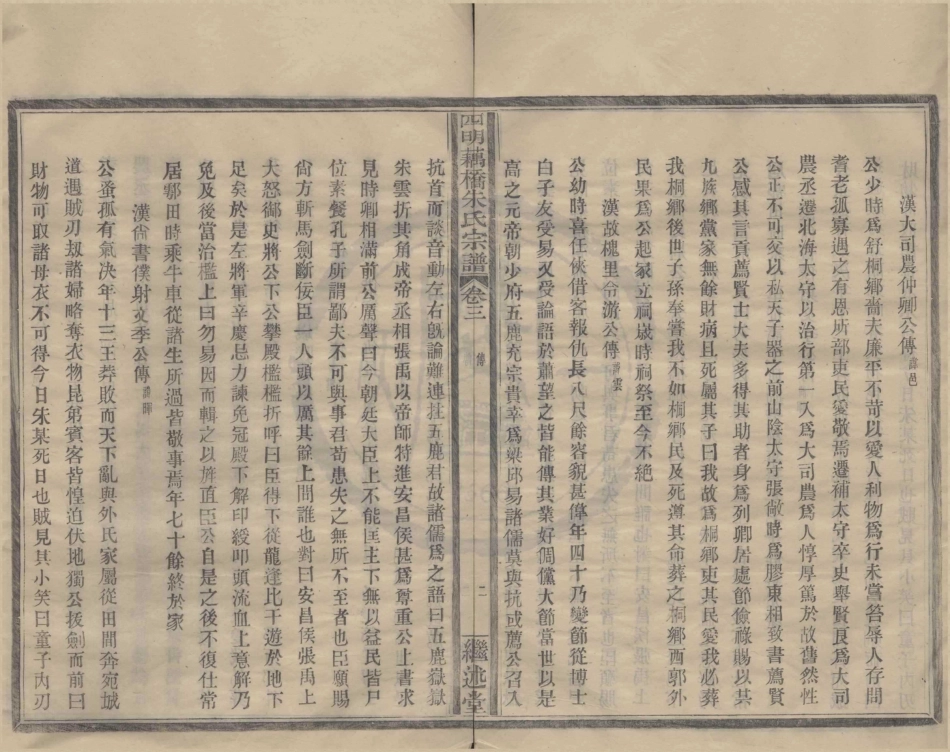 漢大司農仲卿公傳 諱邑
公少時爲舒桐鄉嗇夫廉平不苛以愛人利物爲行未嘗笞辱人存問
耆老孤寡遇之有恩所部吏民愛敬焉遷補太守卒史舉賢良爲大司
農丞遷北海太守以治行第一入爲大司農爲人惇厚篤於故舊然性
公正不可交以私天子器之前山陰太守張敞時爲膠東相致書薦賢
公感其言貢薦賢士大夫多得其助者身爲列卿居處節儉祿賜以共
九族鄉黨家無餘財病且死屬其子曰我故爲桐鄉吏其民愛我必葬
我桐鄉後世子孫奉嘗我不如桐鄉民及死遵其命葬之桐鄉西郭外
民果爲公起冢立祠歲時祠祭至今不絕
漢故槐里令游公傳 諱雲
公幼時喜任俠借客報仇長八尺餘容貌甚偉年四十乃變節從博士
白子友受易又受論語於蕭望之皆能傳其業好倜儻大節當世以是
高之元帝朝少府五鹿充宗貴幸爲梁邱易諸儒莫與抗或薦公召入
四明藕橋朱氏宗譜 卷三 傳 二 繼述堂
抗首而談音動左右旣論難連拄五鹿君故諸儒爲之語曰五鹿嶽嶽
朱雲折其角成帝丞相張禹以帝師特進安昌侯甚爲尊重公上書求
見時卿相滿前公厲聲曰今朝廷大臣上不能匡主下無以益民皆尸
位素餐孔子所謂鄙夫不可與事君苟患失之無所不至者也臣願賜
尙方斬馬劍斷佞臣一人頭以厲其餘上問誰也對曰安昌侯張禹上
大怒御史將公下公攀殿檻檻折呼曰臣得下從龍逢比干遊於地下
足矣於是左將軍辛慶忌力諫免冠殿下解印綬叩頭流血上意解乃
免及後當治檻上曰勿易因而輯之以旌直臣公自是之後不復仕常
居鄠田時乘牛車從諸生所過皆敬事焉年七十餘終於家
漢尙書僕射文季公傳 諱暉
公蚤孤有氣决年十三王莽敗而天下亂與外氏家屬從田間奔宛城
道遇賊刃刼諸婦略奪衣物昆弟賓客皆惶迫伏地獨公拔劍而前曰
財物可取諸母衣不可得今日朱某死日也賊見其小笑曰童子內刃